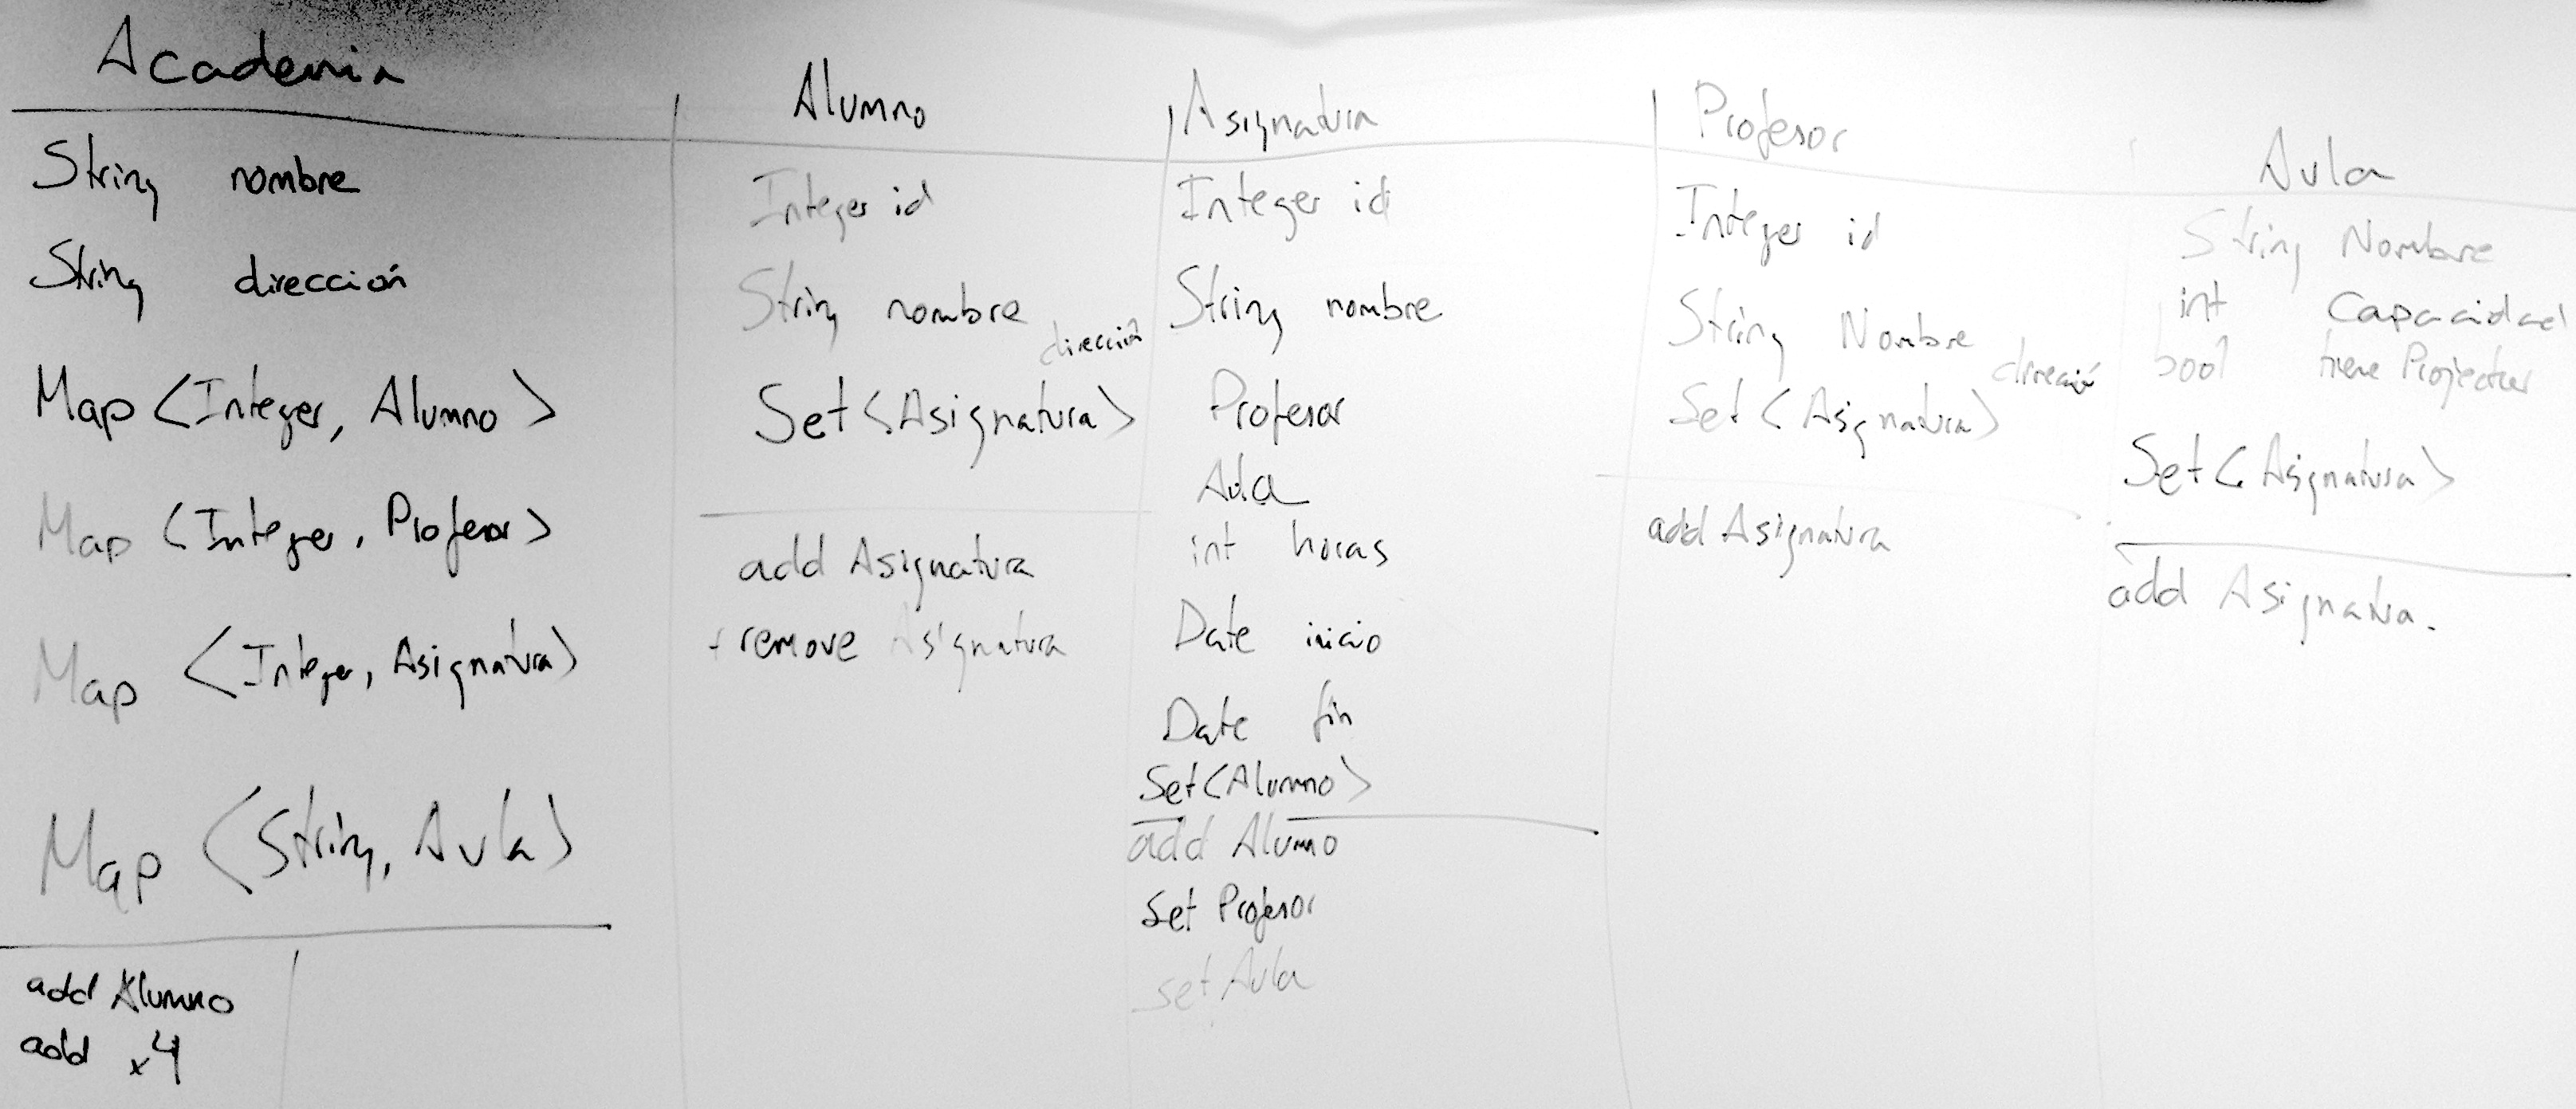 Academia
String nombre
String dirección
Map <Integer, Alumno>
Map <Integer, Profesor>
Map <Integer, Asignatura>
Map <String, Aula>
add Alumno
add x4
Alumno
Integer id
String nombre
dirección
Set <Asignatura>
add Asignatura
remove Asignatura
Asignatura
Integer id
String nombre
Profesor
Aula
int horas
Date inicio
Date fin
Set <Alumno>
add Alumno
Set Profesor
set Aula
Profesor
Integer id
String Nombre
dirección
Set <Asignatura>
add Asignatura
Aula
String Nombre
int Capacidad
bool tiene Projector
Set <Asignatura>
add Asignatura.